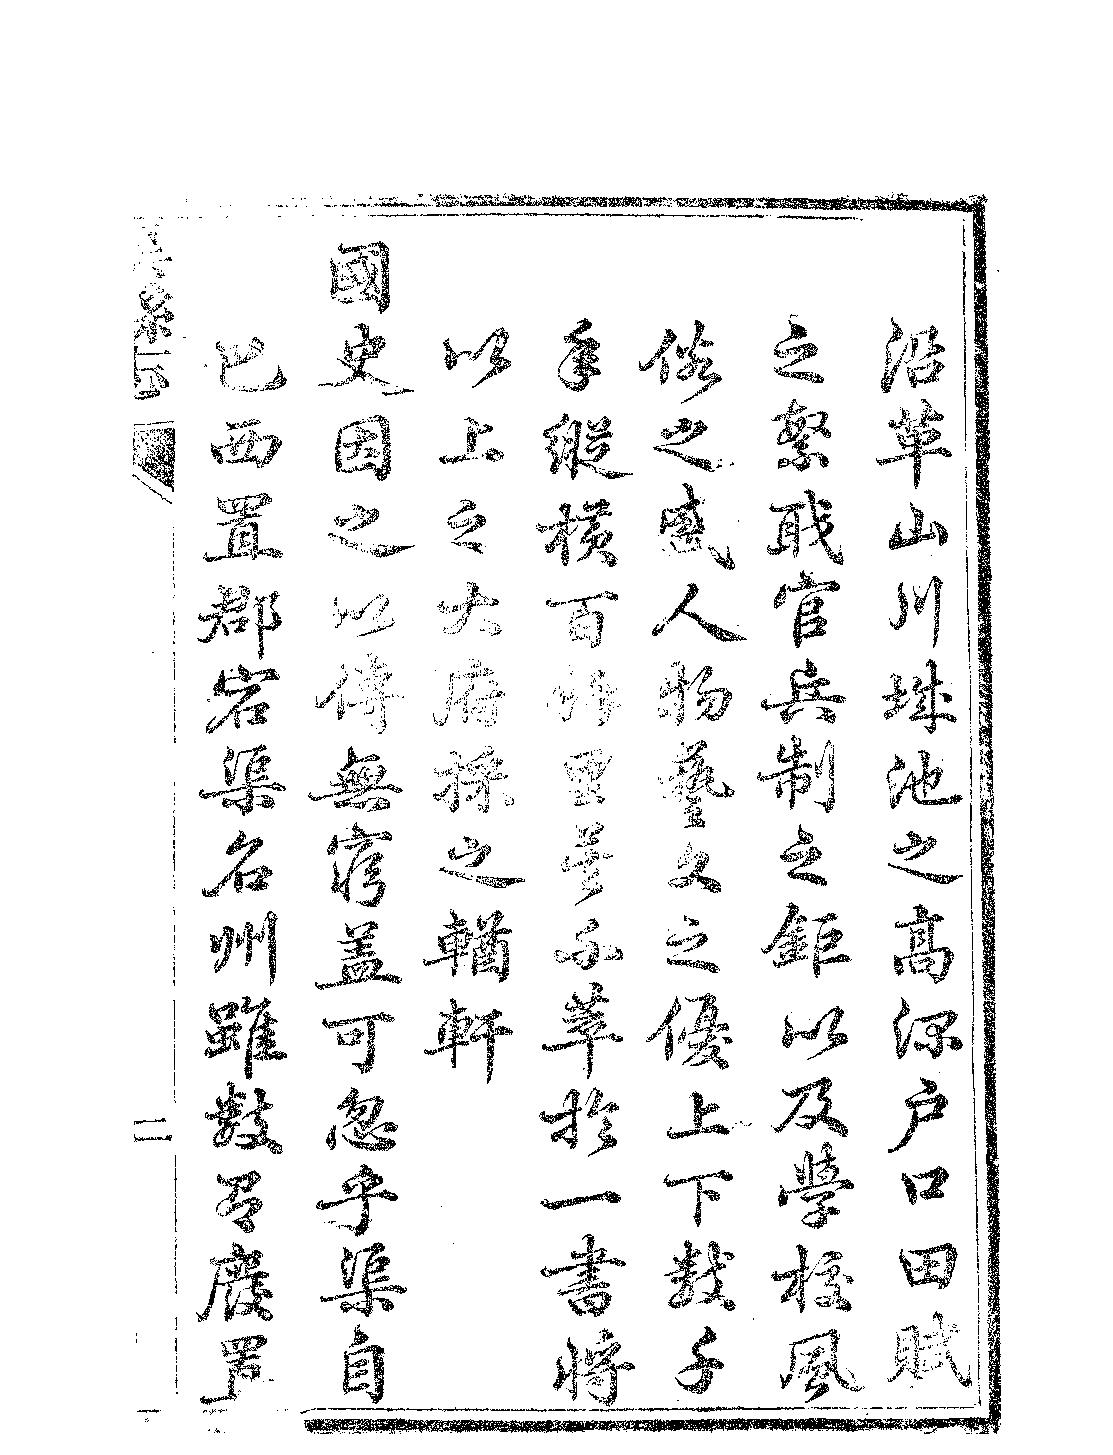 沿革山川城池之高深户口田賦
之繁職官兵制之鉅以及學校風
俗之盛人物藝文之優上下數千
年縱橫百餘里薈不萃於一書將
以上之大府採之輶軒
國史因之以傳無窮蓋可忽乎渠自
巴西置郡宕渠名州雖數有廢置
二